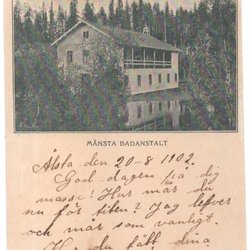 MÅNSTA BADANSTALT
Alsta den 20-8 1902.
God dagen på dig
masse! Hur mår du
nu för tiden? Jag lefver
och mår som vanligt.
Har du fått dina